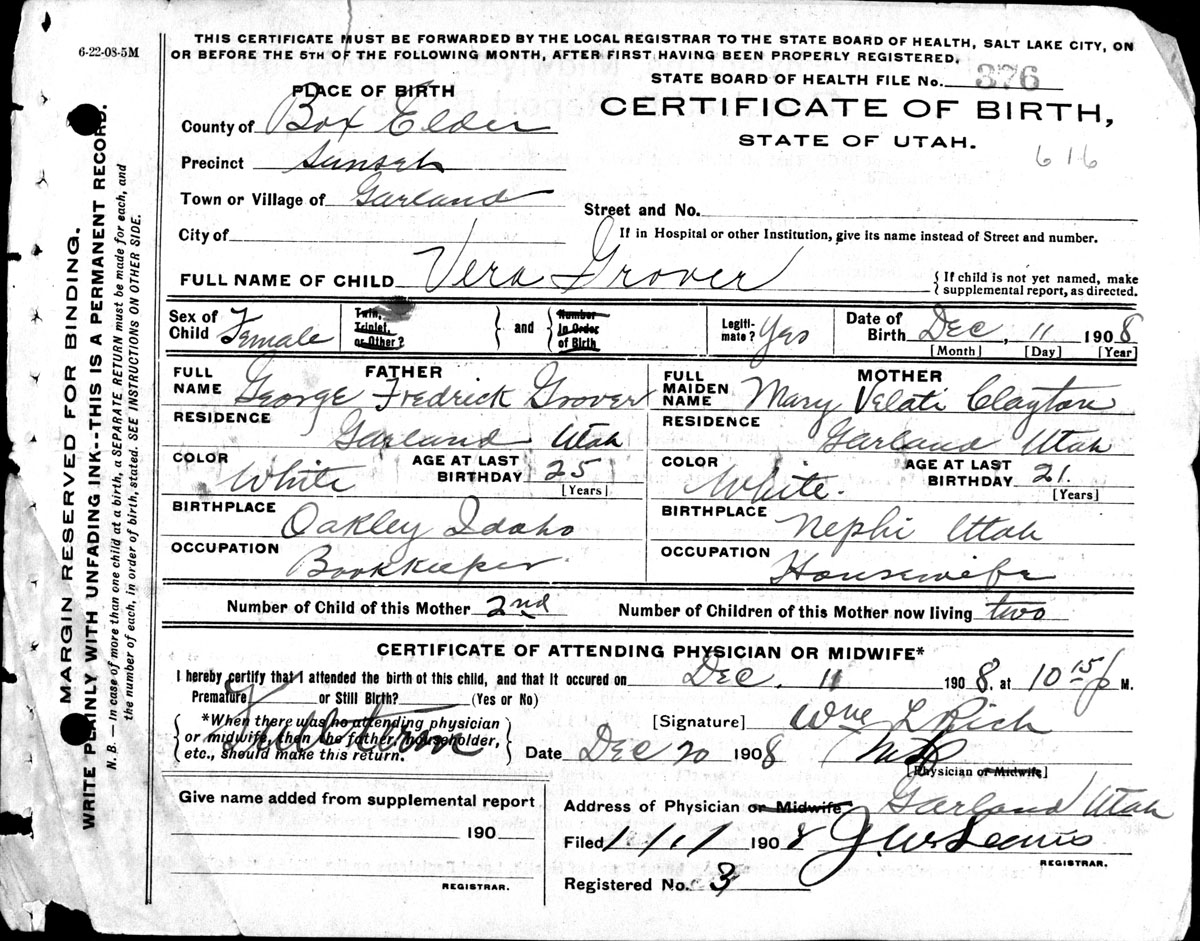 6-22-08-5M
THIS CERTIFICATE MUST BE FORWARDED BY THE LOCAL REGISTRAR TO THE STATE BOARD OF HEALTH, SALT LAKE CITY, ON
OR BEFORE THE 5TH OF THE FOLLOWING MONTH, AFTER FIRST HAVING BEEN PROPERLY REGISTERED.
STATE BOARD OF HEALTH FILE No. 376
PLACE OF BIRTH
CERTIFICATE OF BIRTH,
STATE OF UTAH.
616
County of Box Elder
Precinct Sunset
Town or Village of Garland
Street and No.
City of
If in Hospital or other Institution, give its name instead of Street and number.
FULL NAME OF CHILD Vera Grover
{ If child is not yet named, make
supplemental report, as directed.
Sex of Child Female
Twin, Triplet, or Other? } and { Number In Order of Birth
Legiti-mate? Yes
Date of Birth Dec, 11 1908
[Month] [Day] [Year]
FATHER
FULL NAME George Fredrick Grover
RESIDENCE Garland Utah
COLOR White AGE AT LAST BIRTHDAY 25
[Years]
BIRTHPLACE Oakley Idaho
OCCUPATION Bookkeeper
MOTHER
FULL MAIDEN NAME Mary Velati Clayton
RESIDENCE Garland Utah
COLOR White. AGE AT LAST BIRTHDAY 21.
[Years]
BIRTHPLACE Nephi Utah
OCCUPATION Housewife
Number of Child of this Mother 2nd Number of Children of this Mother now living two
CERTIFICATE OF ATTENDING PHYSICIAN OR MIDWIFE*
I hereby certify that I attended the birth of this child, and that it occured on Dec. 11 1908, at 10 15 P M.
Premature or Still Birth? (Yes or No)
Full term
{ *When there was no attending physician
or midwife, then the father, householder,
etc., should make this return. }
[Signature] Wm L Rich
Date Dec 20 1908 MD
[Physician or Midwife]
Give name added from supplemental report
190
REGISTRAR.
Address of Physician or Midwife Garland Utah
Filed 1/11/ 1908 J. W.
REGISTRAR.
Registered No. 3
MARGIN RESERVED FOR BINDING.
WRITE PLAINLY WITH UNFADING INK--THIS IS A PERMANENT RECORD.
N. B. — In case of more than one child at a birth, a SEPARATE RETURN must be made for each, and
the number of each, in order of birth, stated. SEE INSTRUCTIONS ON OTHER SIDE.